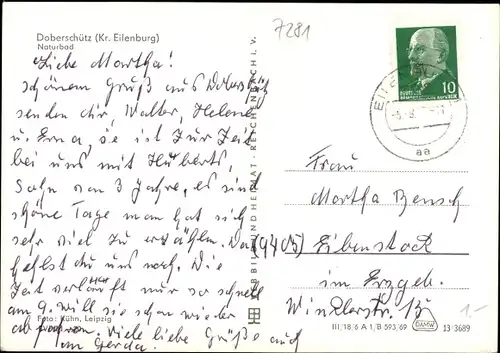 Doberschütz (Kr. Eilenburg)
Naturbad
7281
Liebe Martha!
Schönen Gruß aus Dobersch
senden dir, Walter, Helene
u. Erna, sie ist zur Zeit
bei uns mit Huberts,
Sohn von 3 Jahre, es sind
schöne Tage man hat sich
sehr viel zu erzählen. Da
fehlst du uns noch. Die
Zeit verläuft nur so schnell
am 9. will sie schon wieder
ab fahren. Viele liebe Grüße auch
von Gerda.
Foto: Kühn, Leipzig
BILD UND HEIMAT · REICHENBACH I. V.
10
EILEN
aa
Frau
Martha Bensch
(9405) Eibenstock
im Erzgeb.
Winklerstr. 15
1.-
III/18/6 A 1/B 593/69
DAMW
13-3689